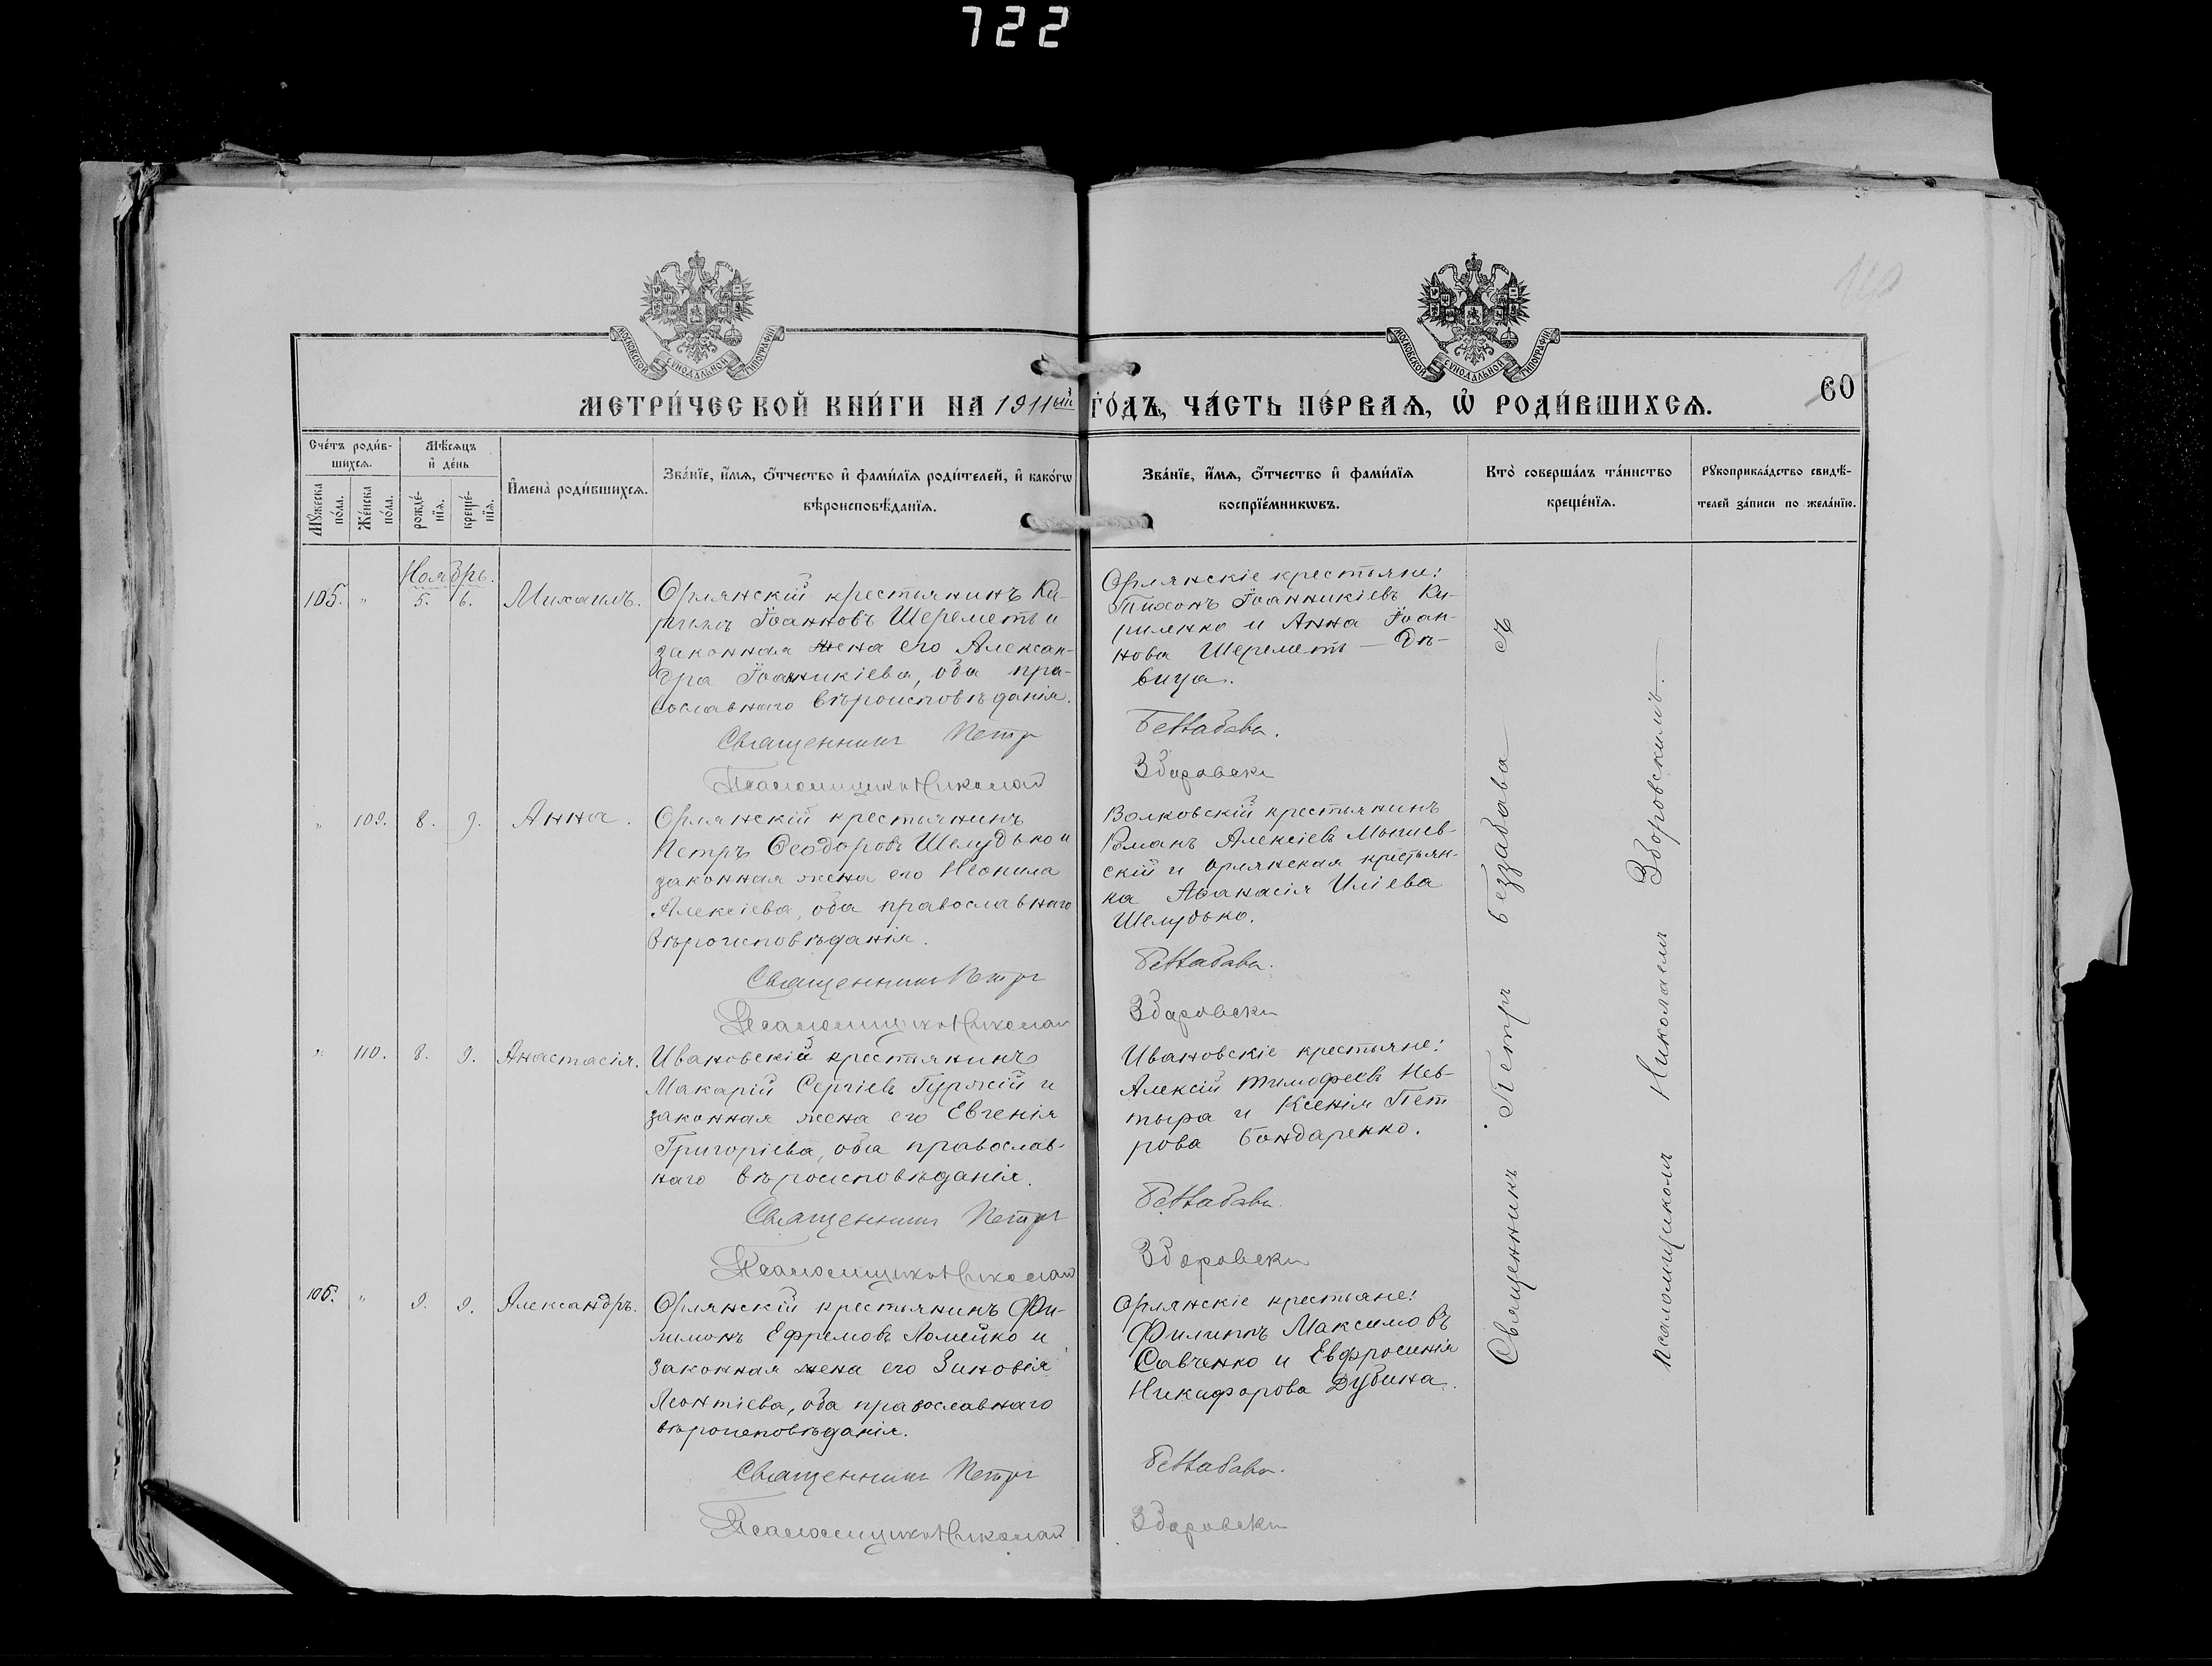 722
МОСКОВСКОЙ СѴНОДАЛЬНОЙ ТИПОГРАФІИ
МОСКОВСКОЙ СѴНОДАЛЬНОЙ ТИПОГРАФІИ
60
МЕТРИ́ЧЕСКОЙ КНИ́ГИ НА 1911ый ГО́ДЪ, ЧА́СТЬ ПЕ́РВАѦ, Ѡ҆ РОДИ́ВШИХСѦ.
Сче́тъ роди́в-
шихсѧ.
Мѹ́жеска по́ла.
Же́нска по́ла.
Мѣ́сѧцъ
и҆ де́нь
рожде́-
нїѧ.
креще́-
нїѧ.
И҆мена̀ роди́вшихсѧ.
Зва́нїе, и҆́мѧ, ѻ҆́тчество и҆ фами́лїѧ роди́телей, и҆ како́гѡ
вѣроисповѣ́данїѧ.
Зва́нїе, и҆́мѧ, ѻ҆́тчество и҆ фами́лїѧ
воспрїе́мникѡвъ.
Кто̀ соверша́лъ та́инство
креще́нїѧ.
Рѹкоприкла́дство свидѣ́-
телей за́писи по жела́нїю.
Ноябрь.
105. " 5. 6. Михаилъ.
Орлянскій крестьянинъ Ки-
риллъ Іоанновъ Шереметъ и
законная жена его Алексан-
дра Іоанникіева, оба пра-
вославнаго вѣроисповѣданія.
Священникъ Петръ
Псаломщикъ Николай
Орлянскіе крестьяне:
Тихонъ Іоанникіевъ Ки-
риленко и Анна Іоан-
нова Шереметъ — дѣ-
вица.
Беззабава.
Здоровски
" 109. 8. 9. Анна.
Орлянскій крестьянинъ
Петръ Ѳеодоровъ Шелудько и
законная жена его Неонила
Алексіева, оба православнаго
вѣроисповѣданія.
Священникъ Петръ
Псаломщикъ Николай
Волковскій крестьянинъ
Романъ Алексіевъ
скій и орлянская крестьян-
ка Аѳанасія Иліева
Шелудько.
Беззабава.
Здоровски
" 110. 8. 9. Анастасія.
Ивановскій крестьянинъ
Макарій Сергіевъ Гуржій и
законная жена его Евгенія
Григоріева, оба православ-
наго вѣроисповѣданія.
Священникъ Петръ
Псаломщикъ Николай
Ивановскіе крестьяне:
Алексій Тимоѳеевъ Нев-
тыра и Ксенія Пет-
рова Бондаренко.
Беззабава.
Здоровски
106. " 9. 9. Александръ.
Орлянскій крестьянинъ Фи-
лимонъ Ефремовъ Ломейко и
законная жена его Зиновія
Леонтіева, оба православнаго
вѣроисповѣданія.
Священникъ Петръ
Псаломщикъ Николай
Орлянскіе крестьяне:
Филиппъ Максимовъ
Савченко и Евфросинія
Никифорова Дубина.
Беззабава.
Здоровски
Священникъ Петръ Беззабава съ
псаломщикомъ Николаемъ Здоровскимъ.